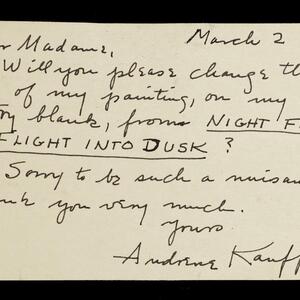 r Madame, March 2
Will you please change th
of my painting, on my
ry blank, from NIGHT F
FLIGHT INTO DUSK ?
Sorry to be such a nuisan
nk you very much.
Yours
Andrene Kauff